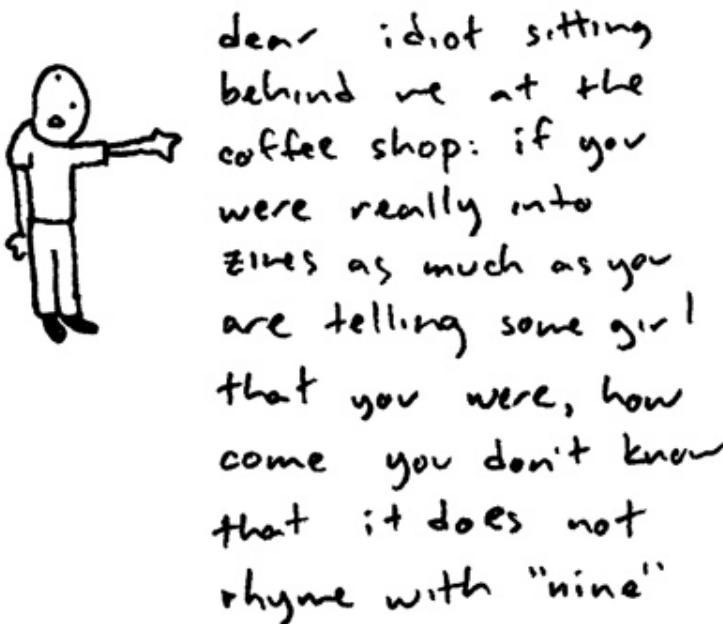 dear idiot sitting
behind me at the
coffee shop: if you
were really into
zines as much as you
are telling some girl
that you were, how
come you don't know
that it does not
rhyme with "nine"